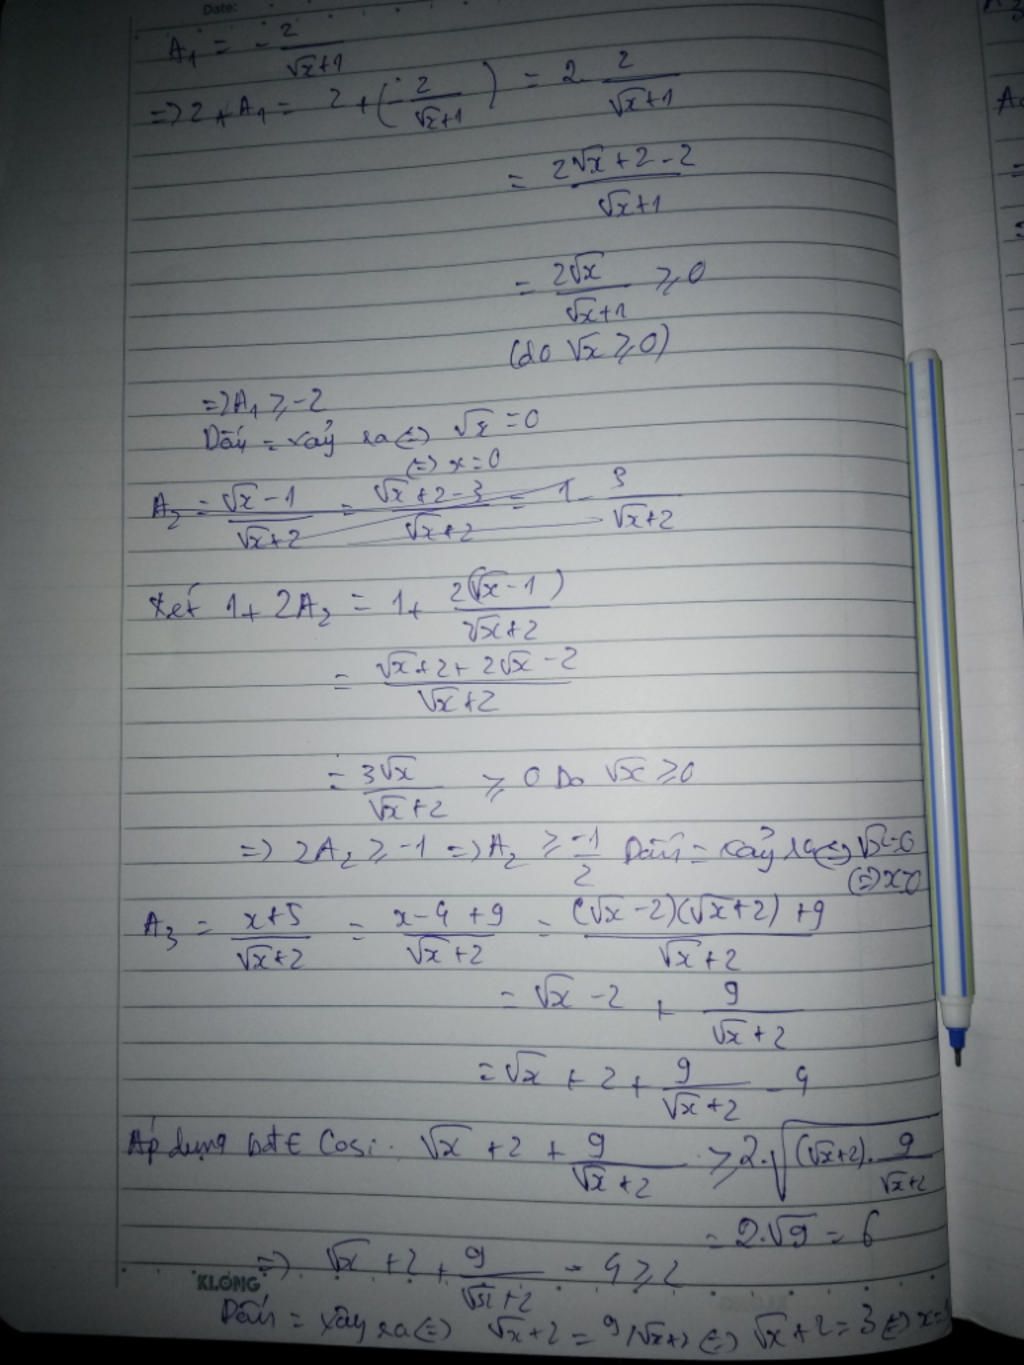 Date:
A₁ = - 2/(√x+1)
=> 2 + A₁ = 2 + (- 2/(√x+1)) = 2 - 2/(√x+1)
= (2√x + 2 - 2)/(√x+1)
= 2√x/(√x+1) ≥ 0
(do √x ≥ 0)
=> A₁ ≥ -2
Dấu = xảy ra <=> √x = 0
<=> x = 0
A₂ = (√x - 1)/(√x+2) = (√x + 2 - 3)/(√x+2) = 1 - 3/(√x+2)
Xét 1 + 2A₂ = 1 + 2(√x - 1)/(√x+2)
= (√x + 2 + 2√x - 2)/(√x+2)
= 3√x/(√x+2) ≥ 0 Do √x ≥ 0
=> 2A₂ ≥ -1 => A₂ ≥ -1/2 Dấu = xảy ra <=> √x = 0
<=> x = 0
A₃ = (x+5)/(√x+2) = (x - 4 + 9)/(√x+2) = ((√x - 2)(√x+2) + 9)/(√x+2)
= √x - 2 + 9/(√x+2)
= √x + 2 + 9/(√x+2) - 4
Áp dụng bđt Cosi. √x + 2 + 9/(√x+2) ≥ 2.√((√x+2).9/(√x+2))
= 2.√9 = 6
=> √x + 2 + 9/(√x+2) - 4 ≥ 2
KLONG
Dấu = xảy ra <=> √x + 2 = 9/(√x+2) <=> √x + 2 = 3 <=> x = 1